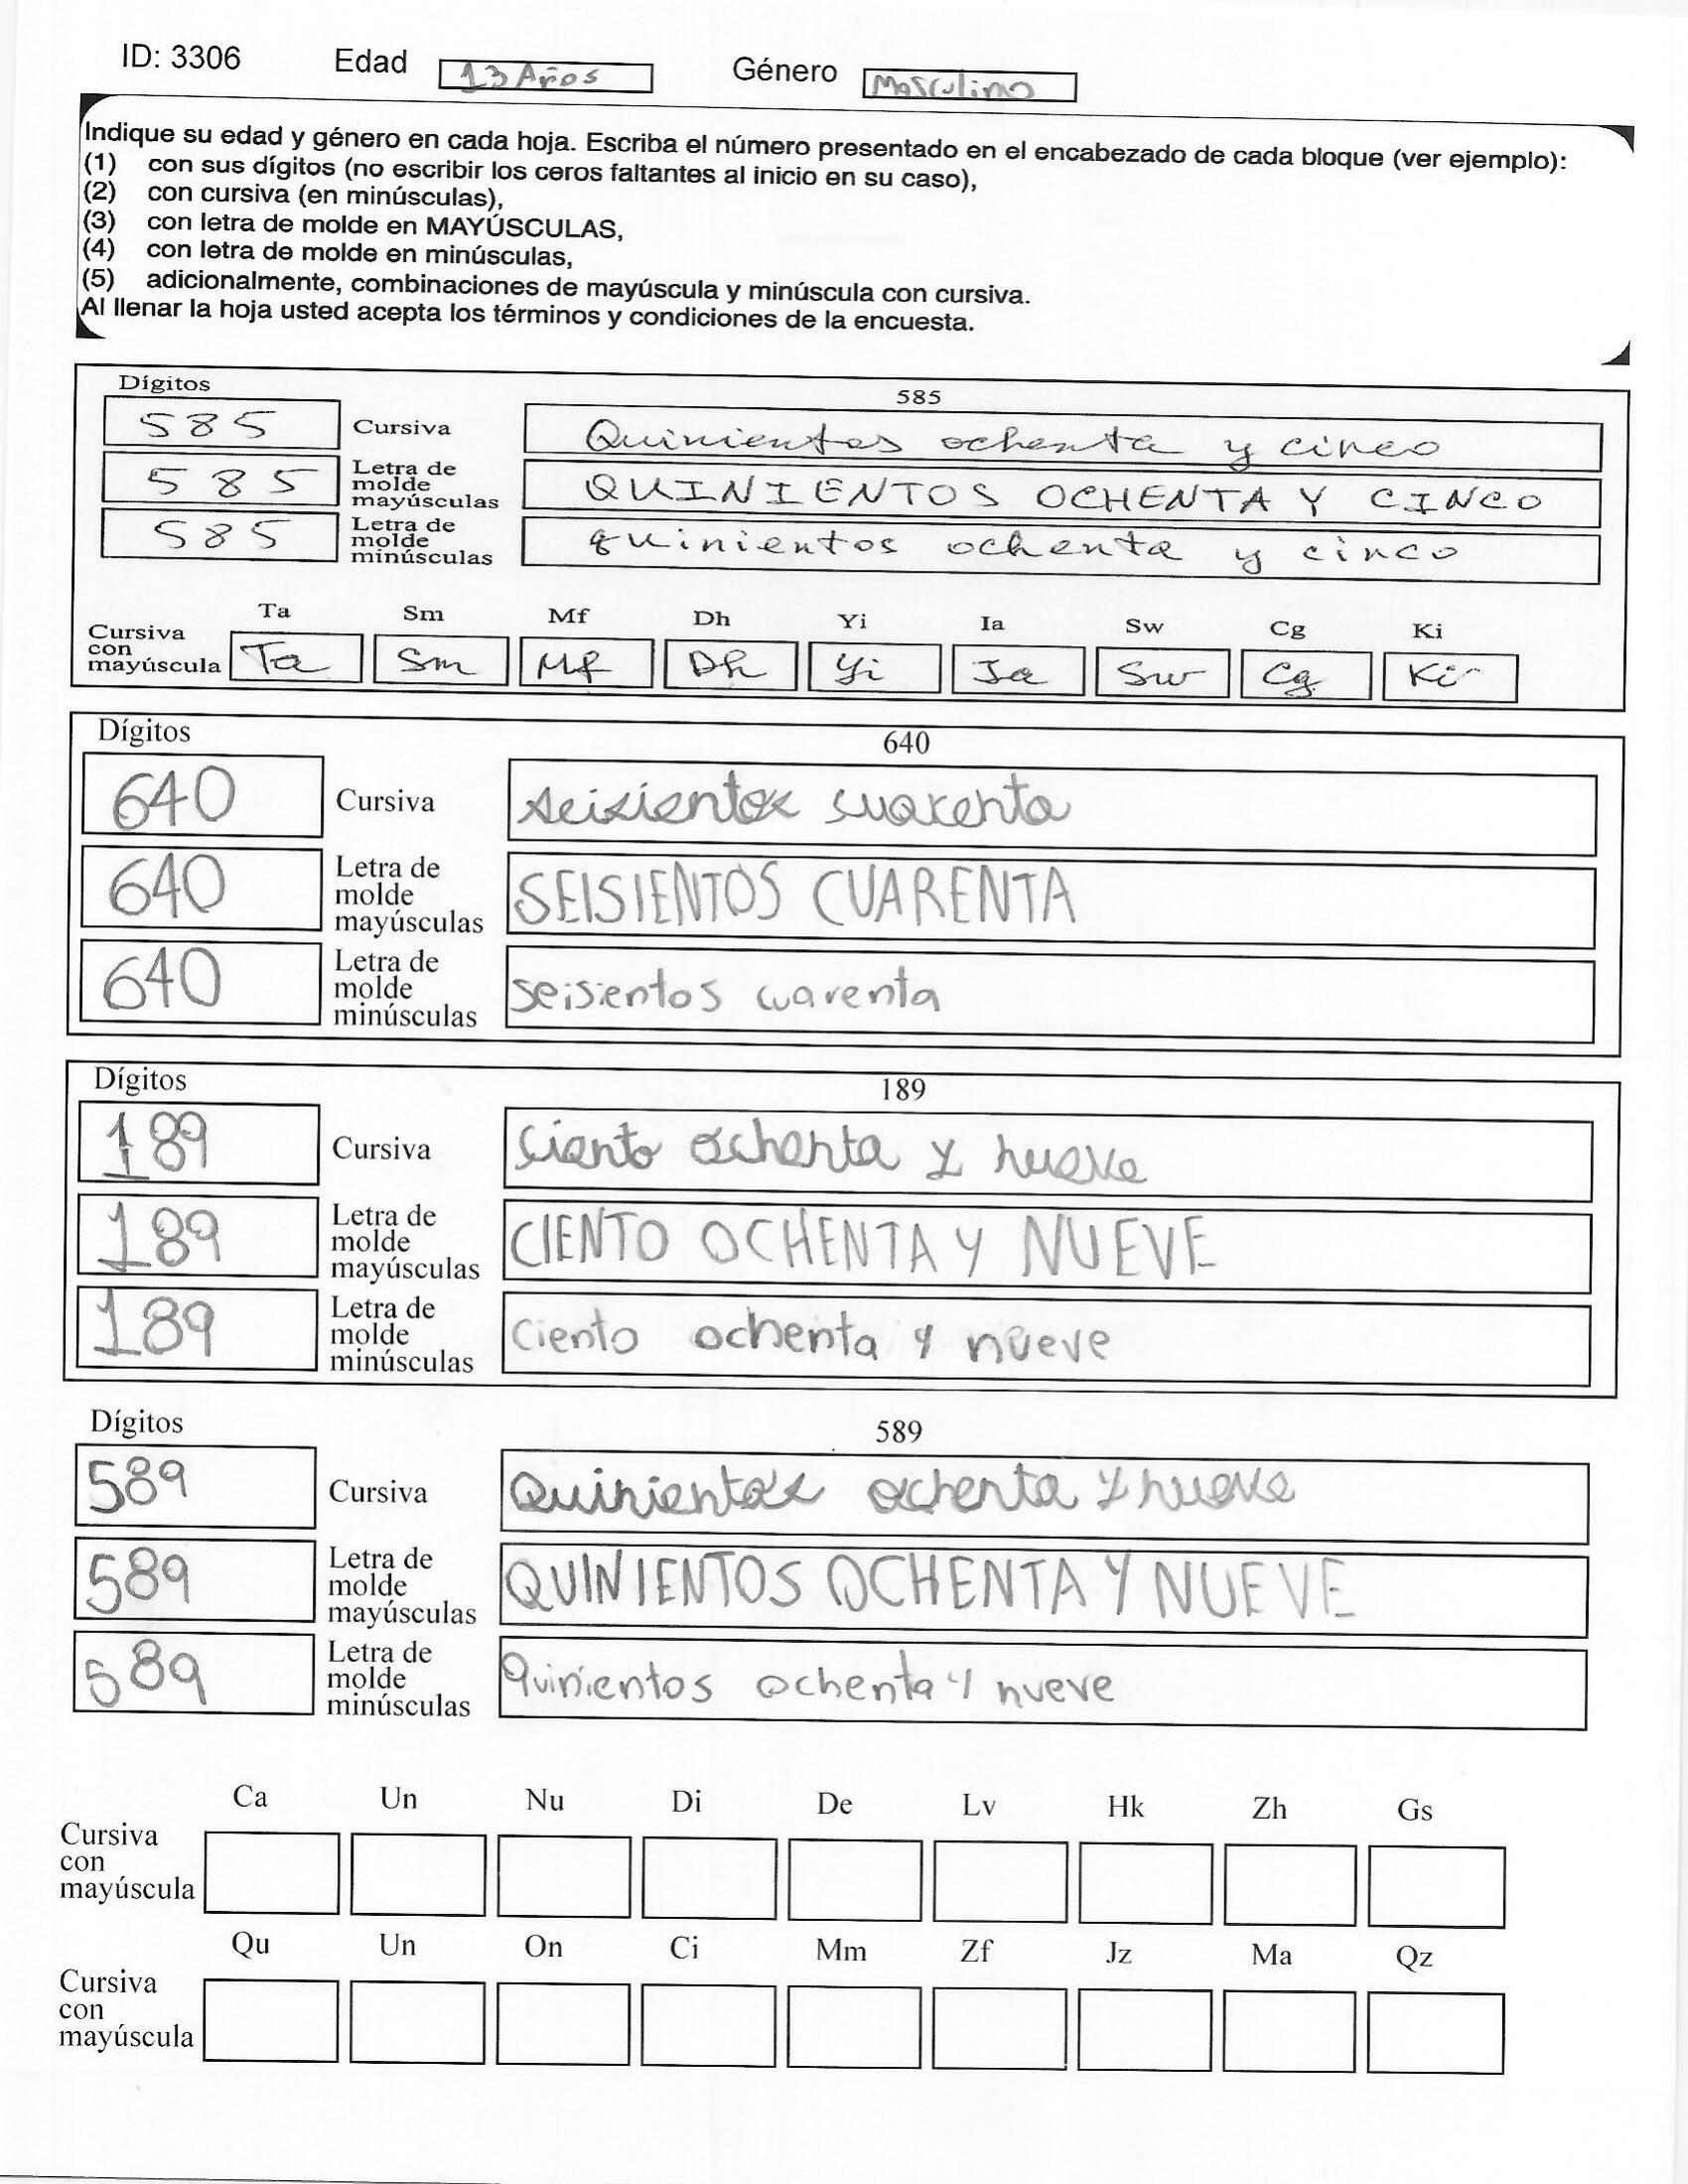 ID: 3306 Edad 13 Años Género Masculino
Indique su edad y género en cada hoja. Escriba el número presentado en el encabezado de cada bloque (ver ejemplo):
(1) con sus dígitos (no escribir los ceros faltantes al inicio en su caso),
(2) con cursiva (en minúsculas),
(3) con letra de molde en MAYÚSCULAS,
(4) con letra de molde en minúsculas,
(5) adicionalmente, combinaciones de mayúscula y minúscula con cursiva.
Al llenar la hoja usted acepta los términos y condiciones de la encuesta.
Dígitos 585
585 Cursiva Quinientos ochenta y cinco
585 Letra de molde mayúsculas QUINIENTOS OCHENTA Y CINCO
585 Letra de molde minúsculas quinientos ochenta y cinco
Ta Sm Mf Dh Yi Ia Sw Cg Ki
Cursiva con mayúscula Ta Sm Mf Dh Yi Ia Sw Cg Ki
Dígitos 640
640 Cursiva seisientos cuarenta
640 Letra de molde mayúsculas SEISIENTOS CUARENTA
640 Letra de molde minúsculas seisientos cuarenta
Dígitos 189
189 Cursiva ciento ochenta y nueve
189 Letra de molde mayúsculas CIENTO OCHENTA Y NUEVE
189 Letra de molde minúsculas ciento ochenta y nueve
Dígitos 589
589 Cursiva Quinientos ochenta y nueve
589 Letra de molde mayúsculas QUINIENTOS OCHENTA Y NUEVE
589 Letra de molde minúsculas quinientos ochenta y nueve
Ca Un Nu Di De Lv Hk Zh Gs
Cursiva con mayúscula
Qu Un On Ci Mm Zf Jz Ma Qz
Cursiva con mayúscula